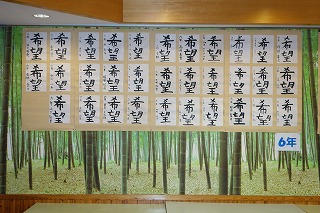 希望 希望 希望 希望 希望 希望 希望 希望 希望 希望 希望
希望 希望 希望 希望 希望 希望 希望 希望 希望 希望 希望
希望 希望 希望 希望 希望 希望 希望 希望 希望 希望
6年